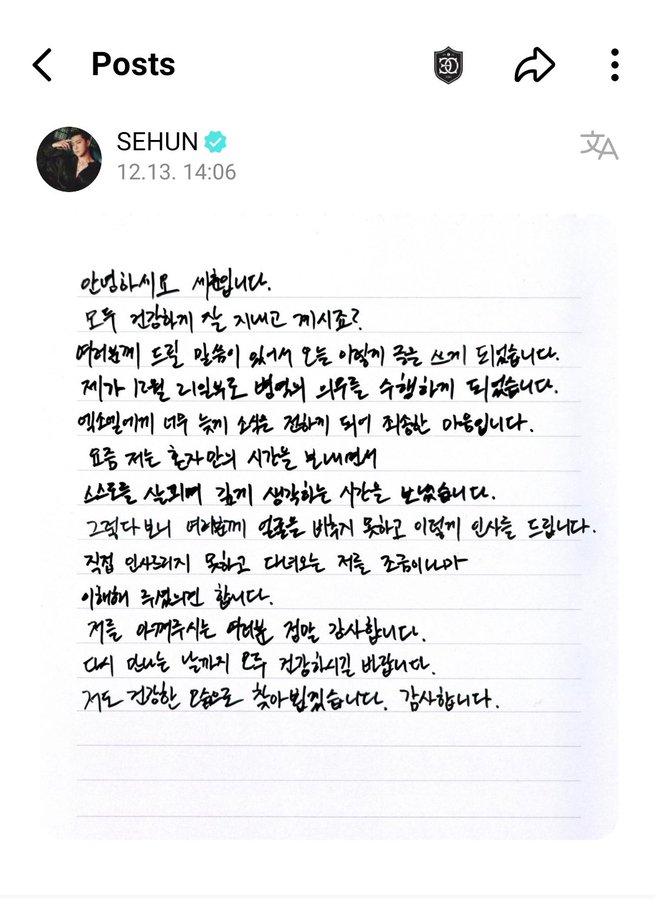 Posts
SEHUN
12.13. 14:06
안녕하세요 세훈입니다.
모두 건강하게 잘 지내고 계시죠?
여러분께 드릴 말씀이 있어서 오늘 이렇게 글을 쓰게 되었습니다.
제가 12월 21일부로 병역의 의무를 수행하게 되었습니다.
엑소엘에게 너무 늦게 소식을 전하게 되어 죄송한 마음입니다.
요즘 저는 혼자만의 시간을 보내면서
스스로를 살피며 깊게 생각하는 시간을 보냈습니다.
그렇다보니 여러분께 얼굴을 비추지 못하고 이렇게 인사를 드립니다.
직접 인사드리지 못하고 다녀오는 저를 조금이나마
이해해 주셨으면 합니다.
저를 아껴주시는 여러분 정말 감사합니다.
다시 만나는 날까지 모두 건강하시길 바랍니다.
저도 건강한 모습으로 찾아뵙겠습니다. 감사합니다.